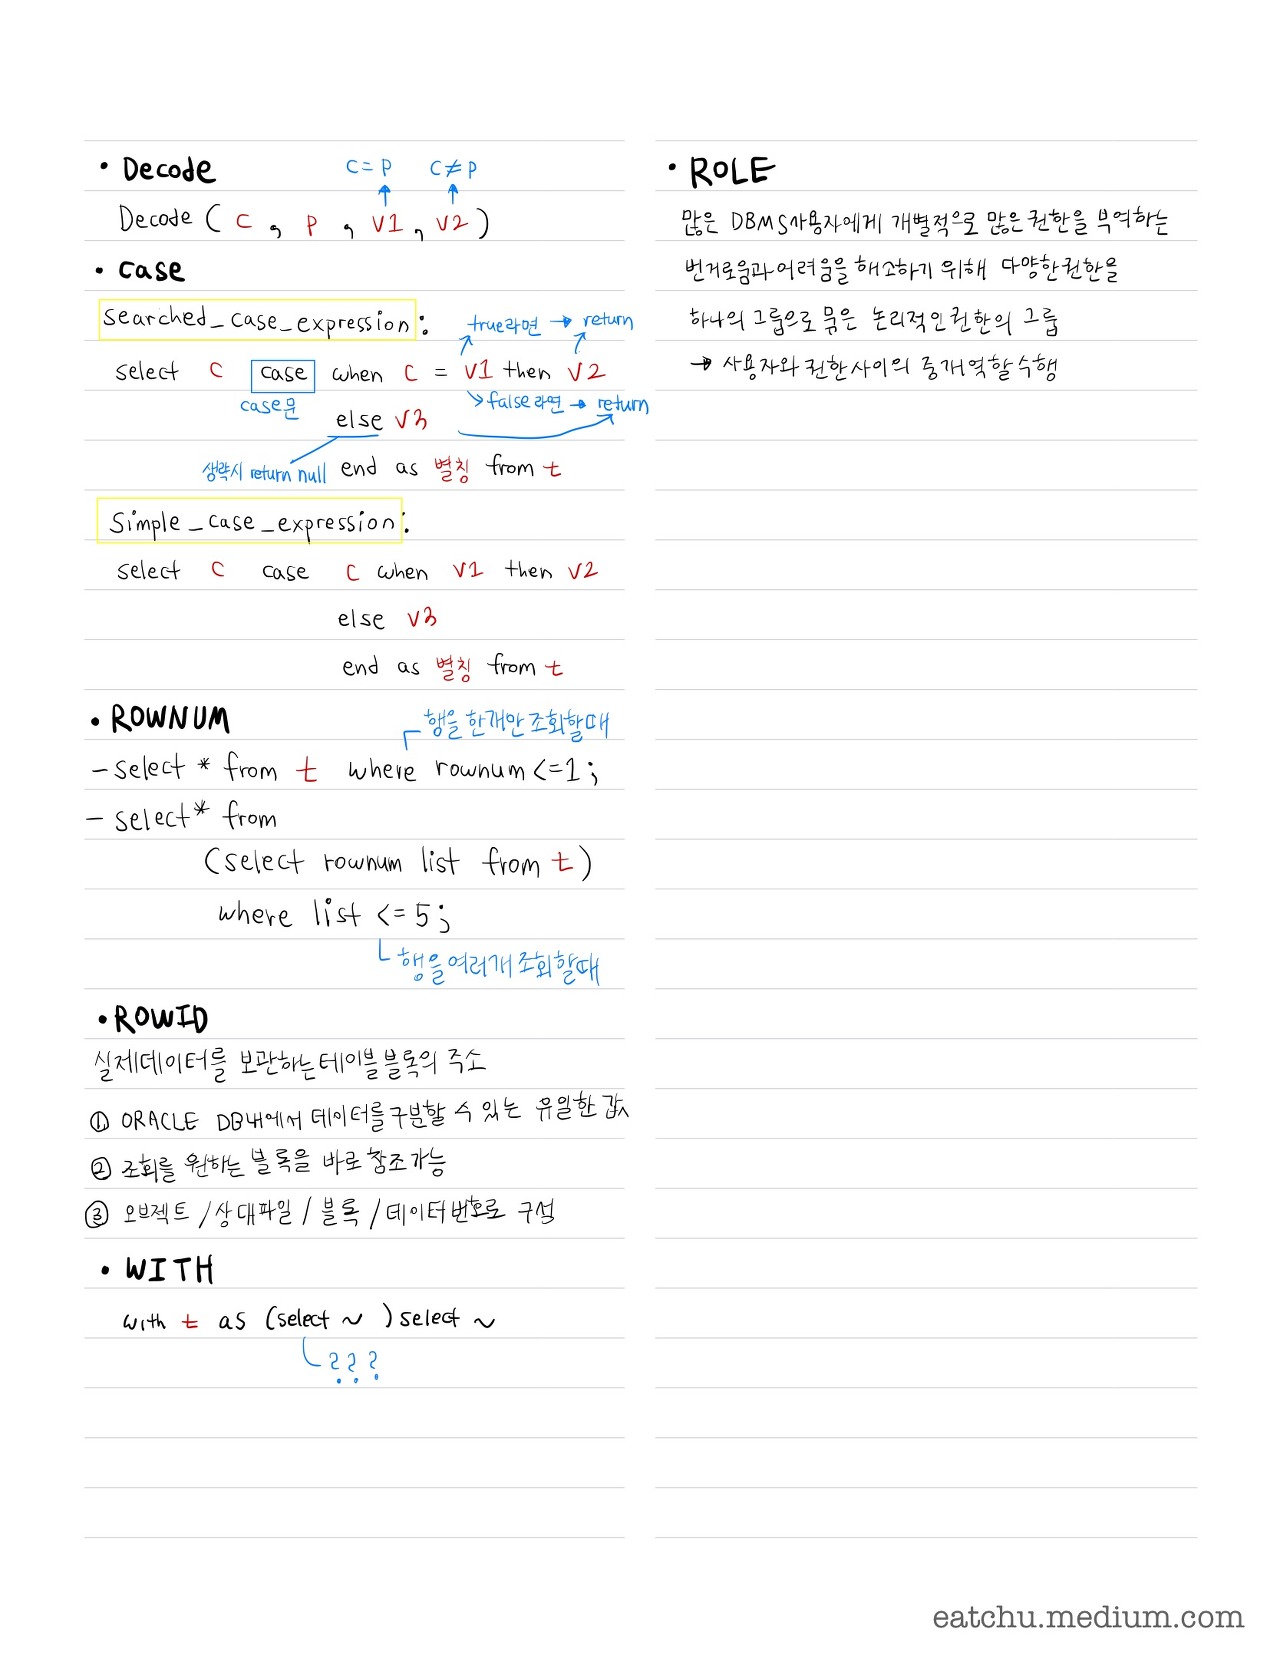 • Decode
C=P C≠P
Decode ( C , P , V1 , V2 )
• case
searched_case_expression :
true라면 → return
select C case when C = V1 then V2
case문
false라면 → return
else V3
생략시 return null
end as 별칭 from t
Simple_case_expression :
select C case C when V1 then V2
else V3
end as 별칭 from t
• ROWNUM
행을 한개만 조회할때
- select * from t where rownum <=1 ;
- select * from
(select rownum list from t )
where list <= 5 ;
행을 여러개 조회할때
• ROWID
실제데이터를 보관하는 테이블 블록의 주소
① ORACLE DB내에서 데이터를 구분할 수 있는 유일한 값
② 조회를 원하는 블록을 바로 참조가능
③ 오브젝트 / 상대파일 / 블록 / 데이터번호로 구성
• WITH
with t as (select ~ ) select ~
???
• ROLE
많은 DBMS사용자에게 개별적으로 많은 권한을 부여하는
번거로움과 어려움을 해소하기 위해 다양한권한을
하나의 그룹으로 묶은 논리적인 권한의 그룹
→ 사용자와 권한사이의 중개역할수행
eatchu.medium.com